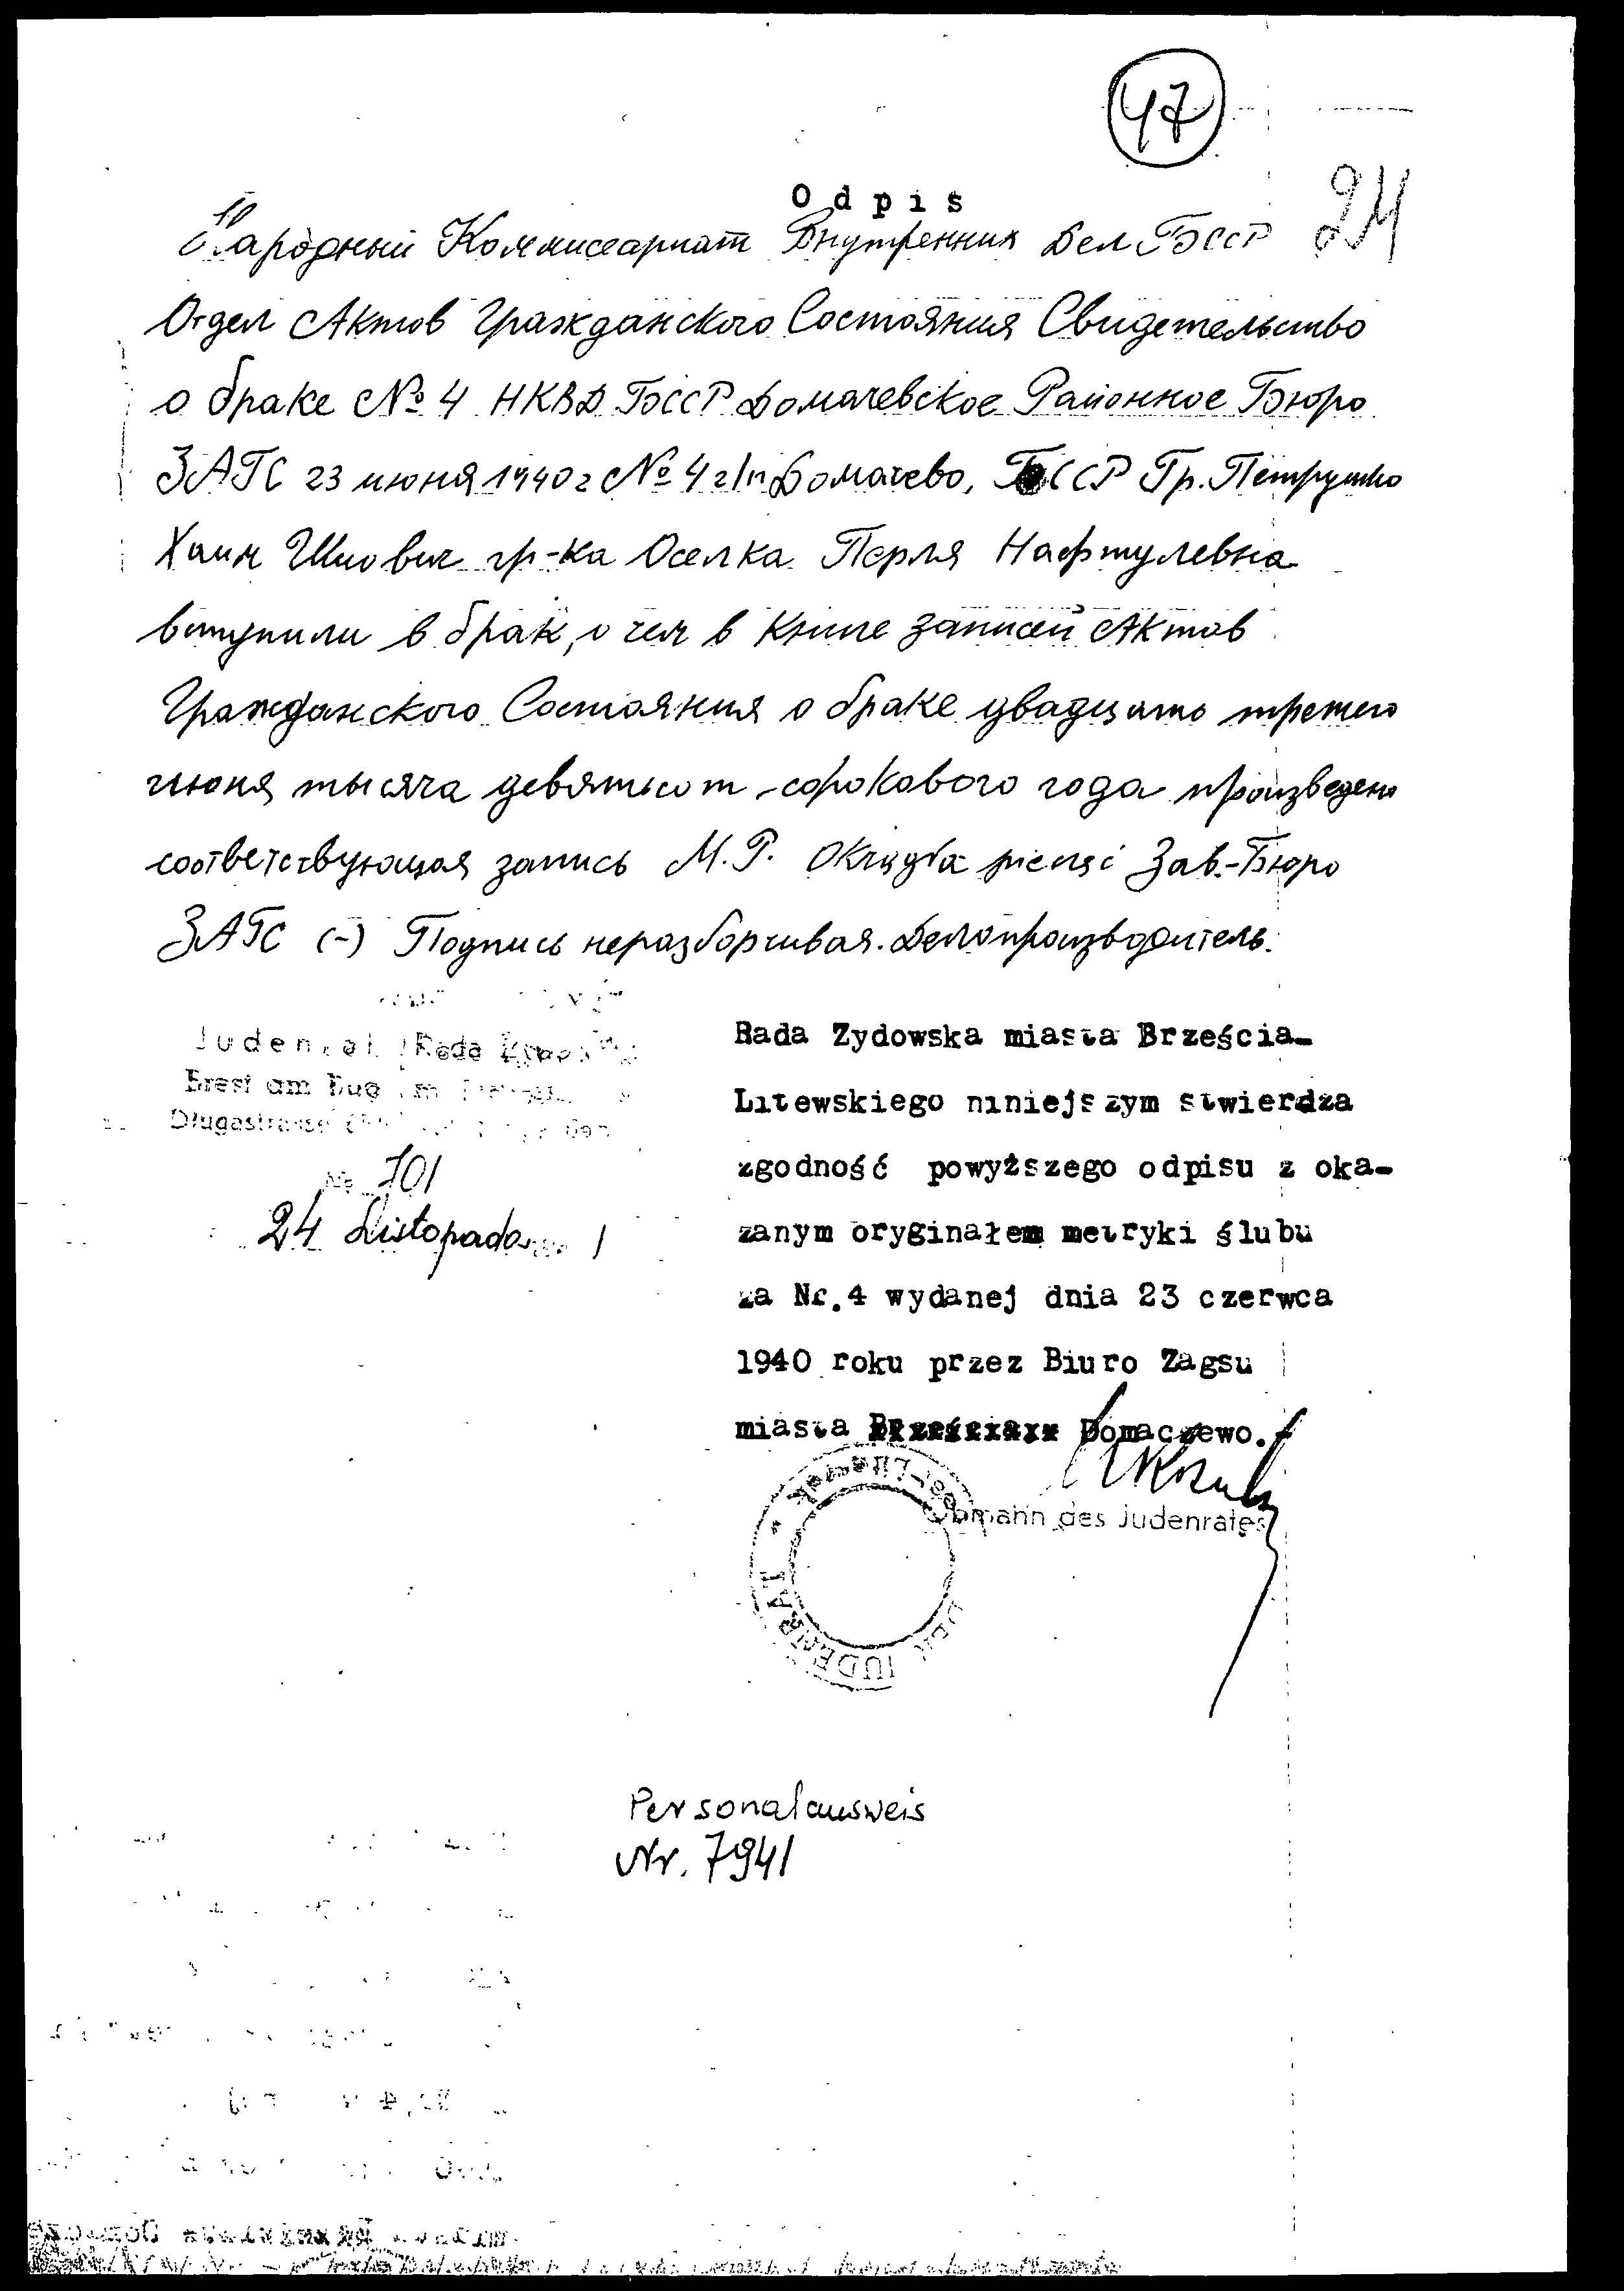 47
24
Odpis
Народный Коммиссариат Внутренних Дел БССР
Отдел Актов Гражданского Состояния Свидетельство
о браке № 4 НКВД БССР Домачевское Районное Бюро
ЗАГС 23 июня 1940 г № 4 г/п Домачево, БССР Гр. Петрушко
Хаим Шмович гр-ка Оселка Перля Нафтулевна
вступили в брак, о чем в книге записей Актов
Гражданского Состояния о браке двадцать третьего
июня тысяча девятьсот сорокового года произведена
соответствующая запись М.Р. Okrągła pieczęć Зав.-Бюро
ЗАГС (-) Подпись неразборчивая. Делопроизводитель.
Judenrat Rada
Brest am Bug
Długastrasse
№ 701
24 Listopada
Rada Zydowska miasta Brześcia-
Litewskiego niniejszym stwierdza
zgodność powyższego odpisu z oka-
zanym oryginałem metryki ślubu
za Nr.4 wydanej dnia 23 czerwca
1940 roku przez Biuro Zagsu
miasta Domaczewo.
Obmann des Judenrates
DER JUDENRAT
Personalausweis
Nr. 7941